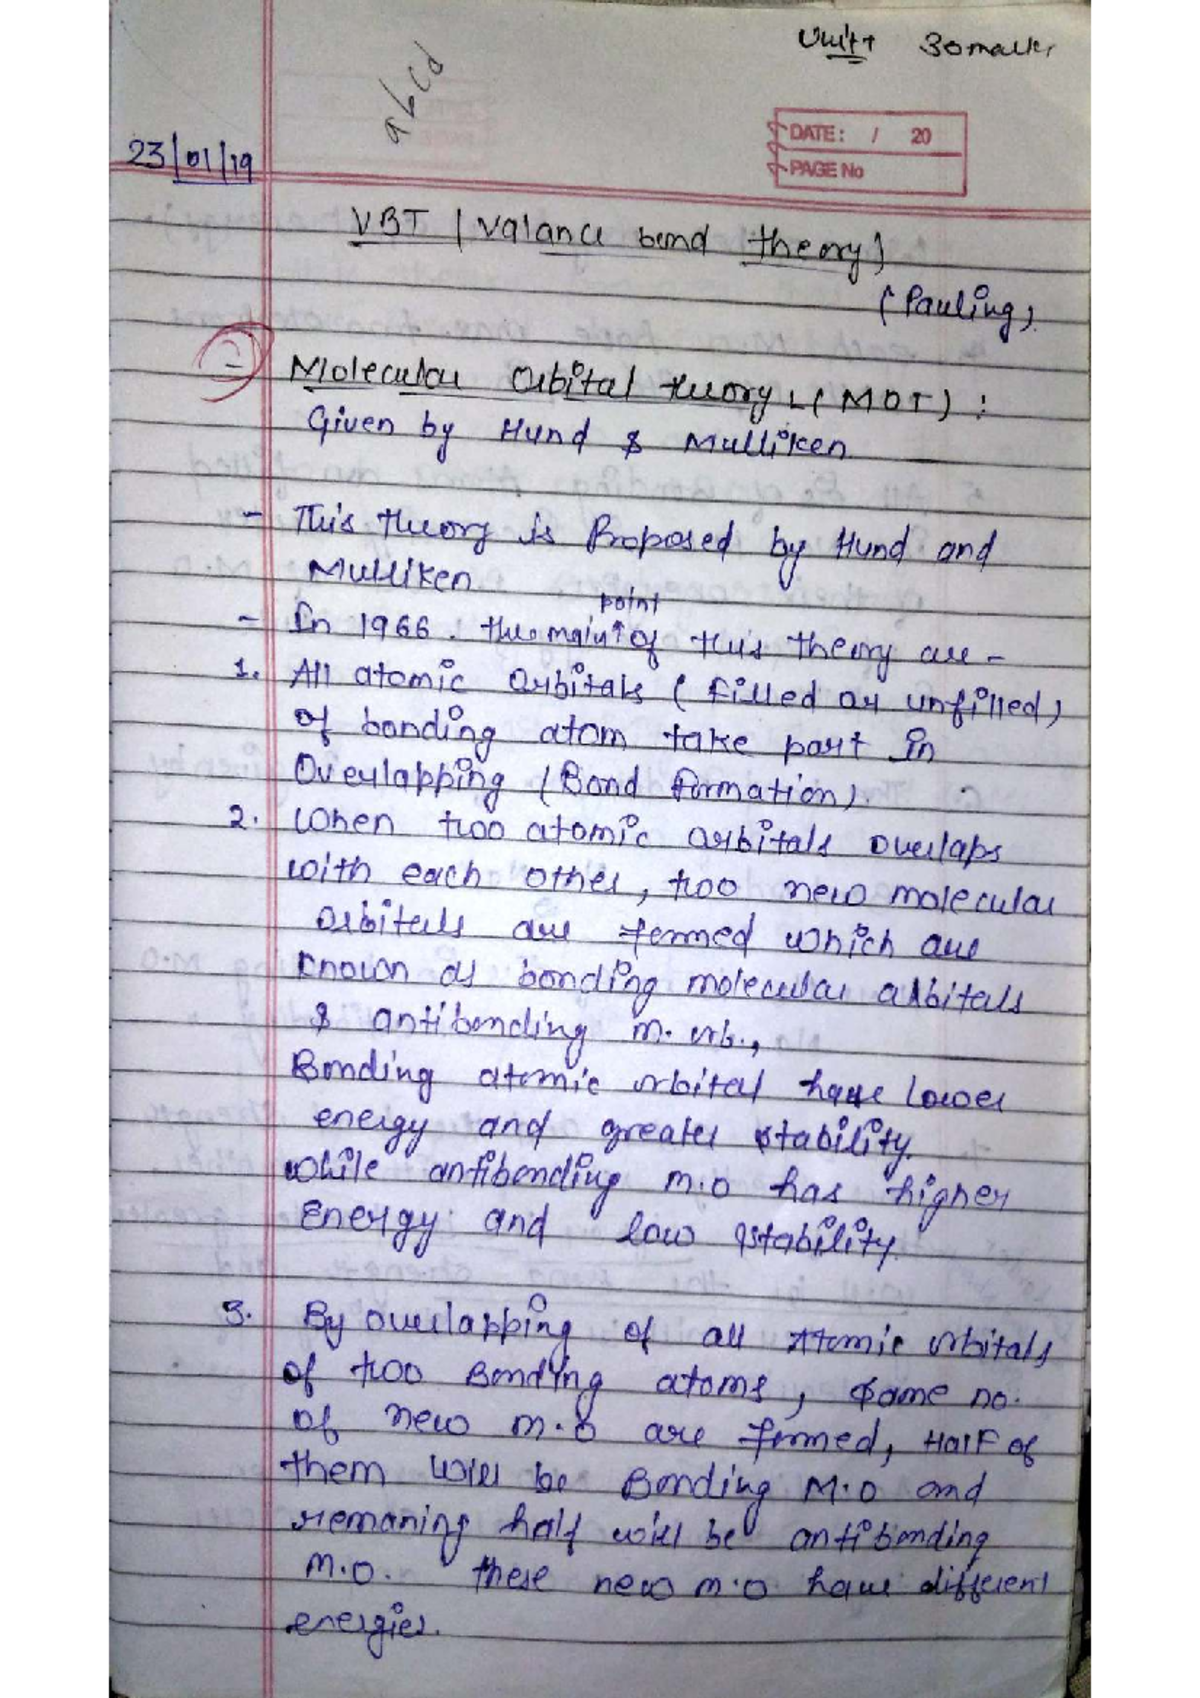 Unit 30 marks
abcd
DATE: / 20
PAGE No
23/01/19
VBT (Valance bond theory)
(Pauling)
2 Molecular Orbital theory (MOT) :
Given by Hund & Mulliken
- This theory is Proposed by Hund and
Mulliken
point
- In 1966. the main ↑ of this theory are -
1. All atomic Orbitals (filled or unfilled)
of bonding atom take part in
Overlapping (Bond formation).
2. When two atomic orbitals overlaps
with each other, two new molecular
orbitals are formed which are
known as bonding molecular orbitals
& antibonding m. orb.,
Bonding atomic orbital have lower
energy and greater stability.
while antibonding M.O has higher
Energy and low stability.
3. By overlapping of all Atomic orbitals
of two Bonding atoms, Same no.
of new M.O are formed, Half of
them will be Bonding M.O and
remaning half will be antibonding
M.O. These new M.O have different
energies.